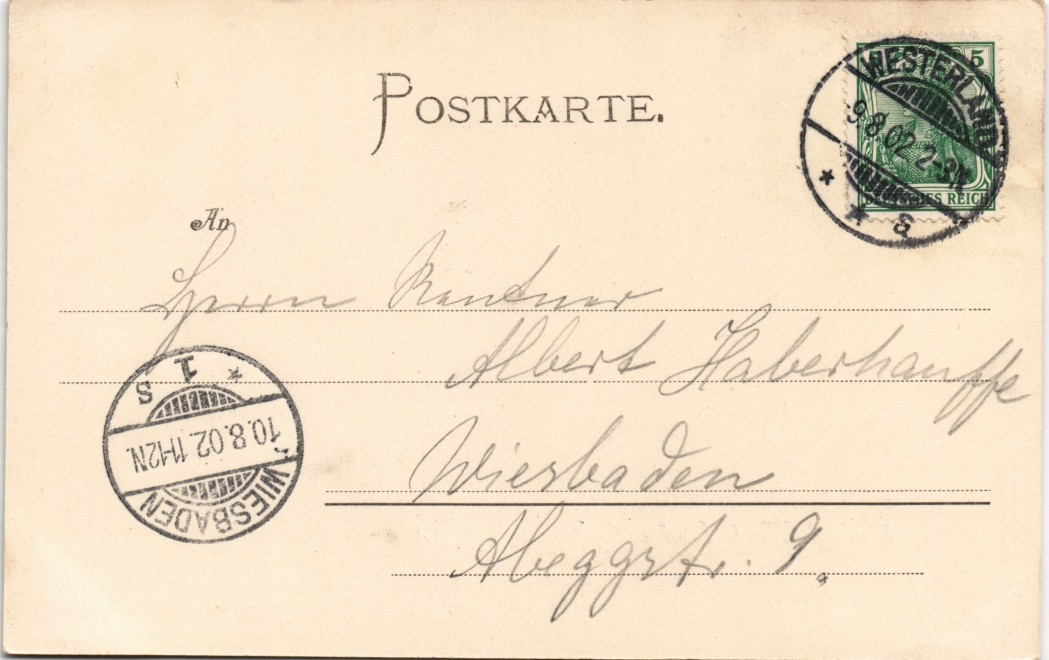 POSTKARTE.
5
DEUTSCHES REICH
WESTERLAND
9.8.02. 2-3N.
* * a
An
Herrn Rentner
Albert Haberhauffe
Wiesbaden
Abeggstr. 9.
WIESBADEN
10.8.02. 11-12N.
* 1 s